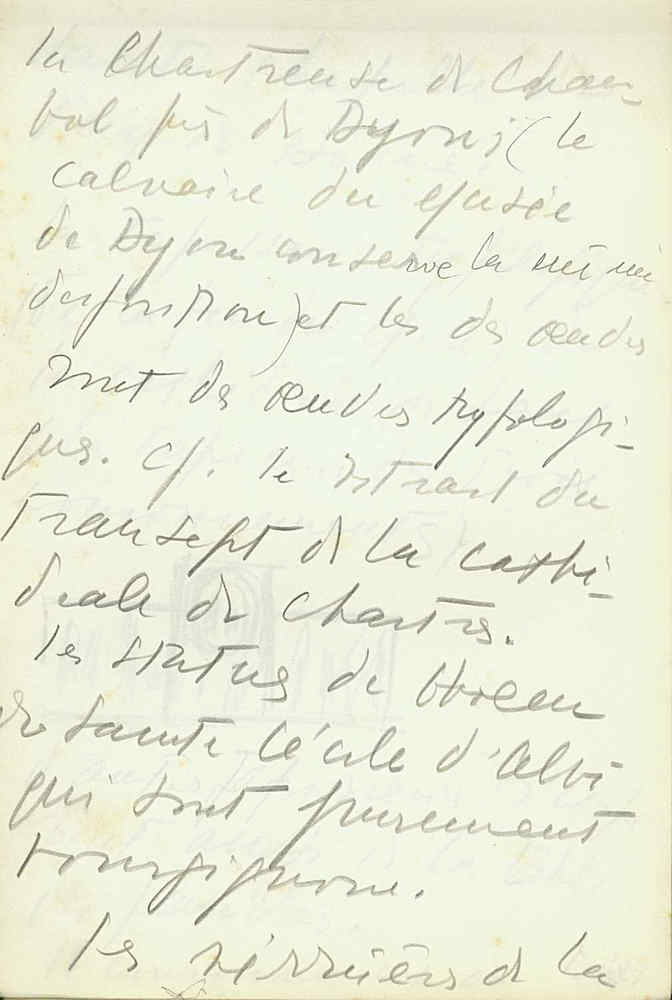 la Chartreuse de Cham-
bol près de Dyon ; ( le
calvaire du Musée
de Dyon conserve la même
disposition ) et les des
sont des typologi-
ques. Cf. le du
transept de la cathé-
drale de Chartres.
les statues de
de Sainte Cécile d'Albi
qui sont purement
bourgignone.
les verrières de la